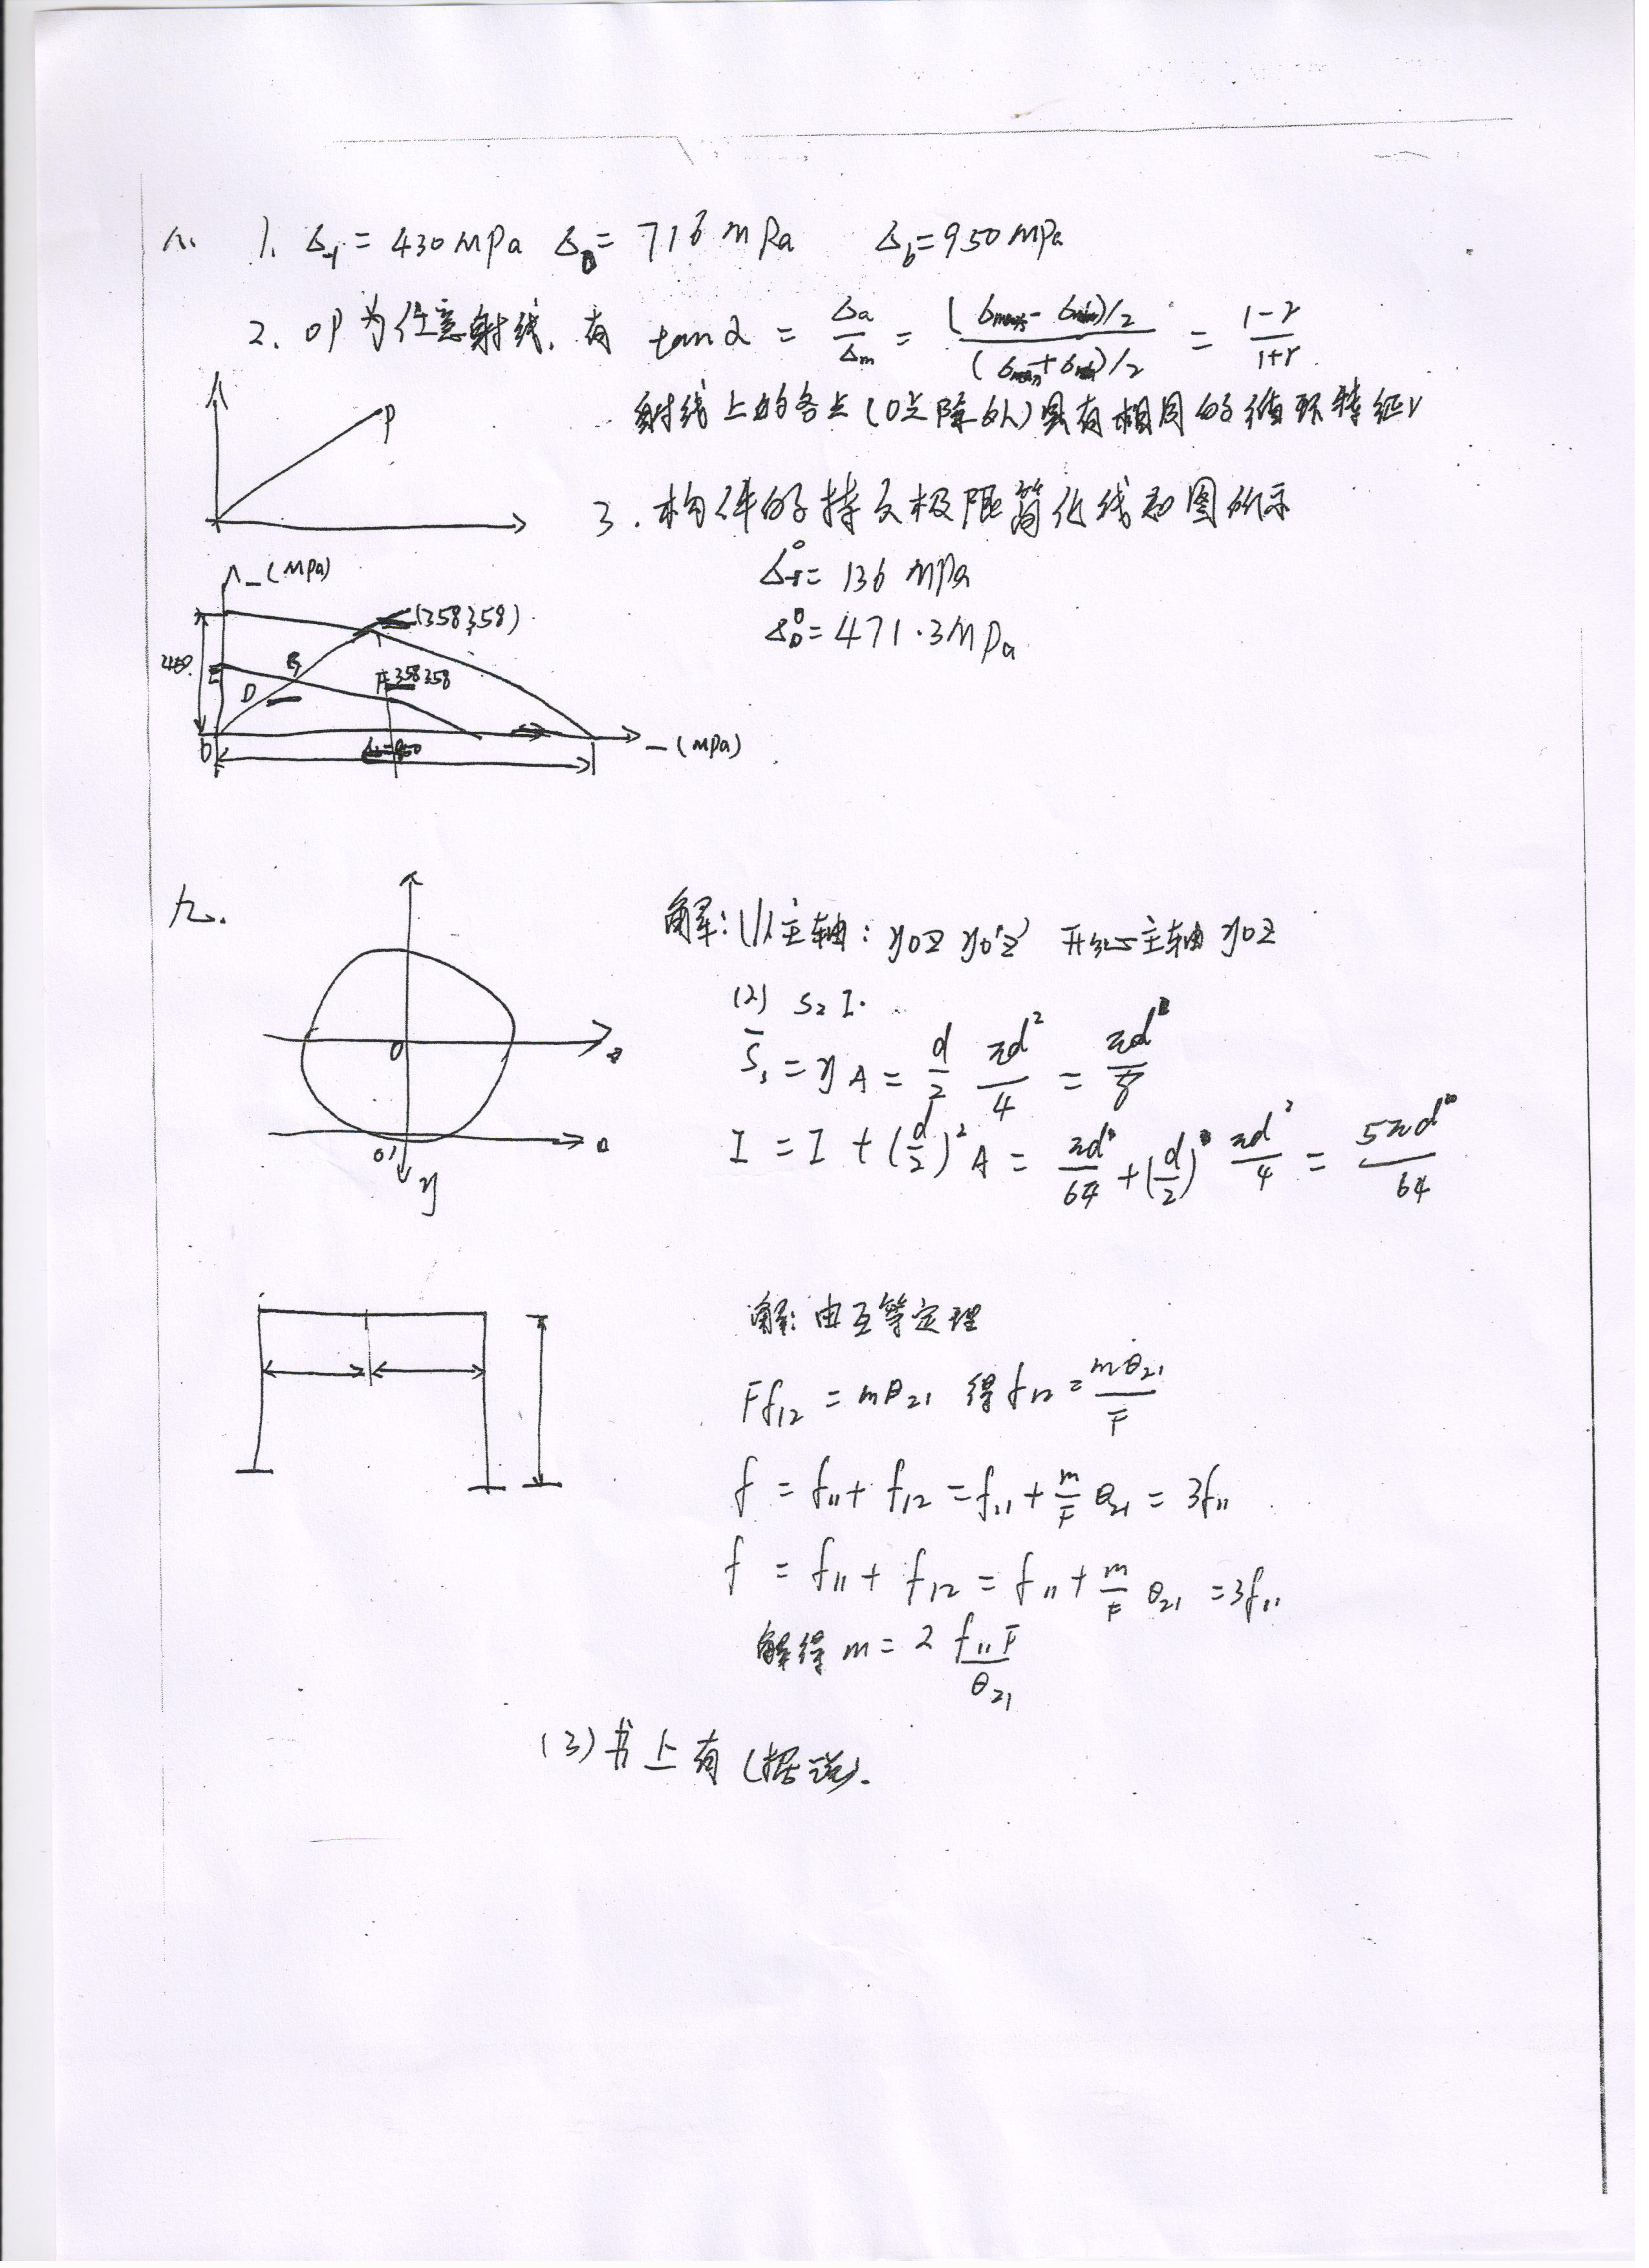 八. 1. σ₋₁ = 430 MPa σ₀ = 716 MPa σb = 950 MPa
2. OP为任意射线, 有 tanα = σa/σm = ((σmax - σmin)/2)/((σmax + σmin)/2) = (1-r)/(1+r)
P
射线上的各点(0点除外)具有相同的循环特征r
3. 构件的持久极限简化线如图所示
(MPa)
= 136 MPa
(358,358)
= 471.3MPa
E
358 358
D
σb=950
O
(MPa)
九.
解: (1)主轴: yoz yo'z' 形心主轴 yoz
(2)
O
z
S = yA = d/2 πd²/4 = πd³/8
I = I + (d/2)²A = πd⁴/64 + (d/2)² πd²/4 = 5πd⁴/64
o'
y
解: 由互等定理
Ff₁₂ = mθ₂₁ 得f₁₂ = mθ₂₁/F
f = f₁₁ + f₁₂ = f₁₁ + m/F θ₂₁ = 3f₁₁
f = f₁₁ + f₁₂ = f₁₁ + m/F θ₂₁ = 3f₁₁
解得 m = 2 f₁₁F/θ₂₁
(3) 书上有(据说).